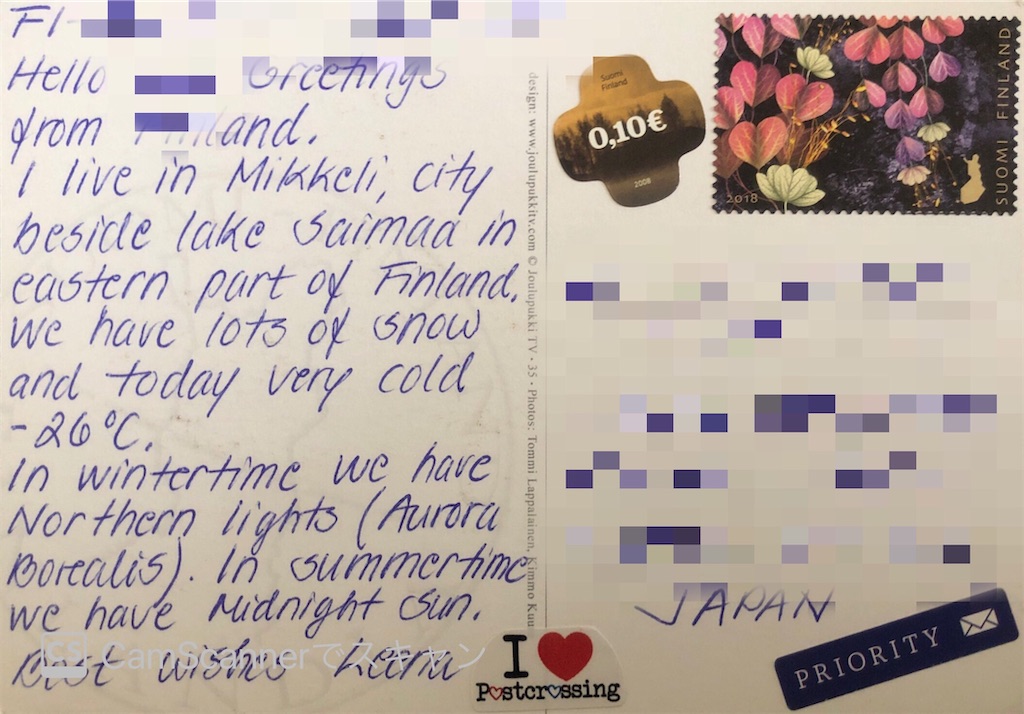 FI-
Hello Greetings
from Finland.
I live in Mikkeli, city
beside lake Saimaa in
eastern part of Finland.
We have lots of snow
and today very cold
-26°C.
In wintertime we have
Northern lights (Aurora
Borealis). In summertime
we have Midnight Sun.
Best wishes
CamScannerでスキャン
CS
design: www.joulupukkitv.com © Joulupukki TV · 35 · Photos: Tommi Lappalainen, Kimmo
Suomi
Finland
0,10€
2008
2018
SUOMI FINLAND
JAPAN
PRIORITY
I
Postcrossing